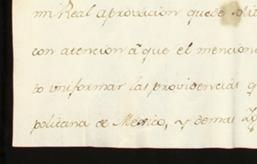 mi Real aprovacion quede
con atencion â que el mencion
to uniformar las providencias q
politana de Mexico, y demas